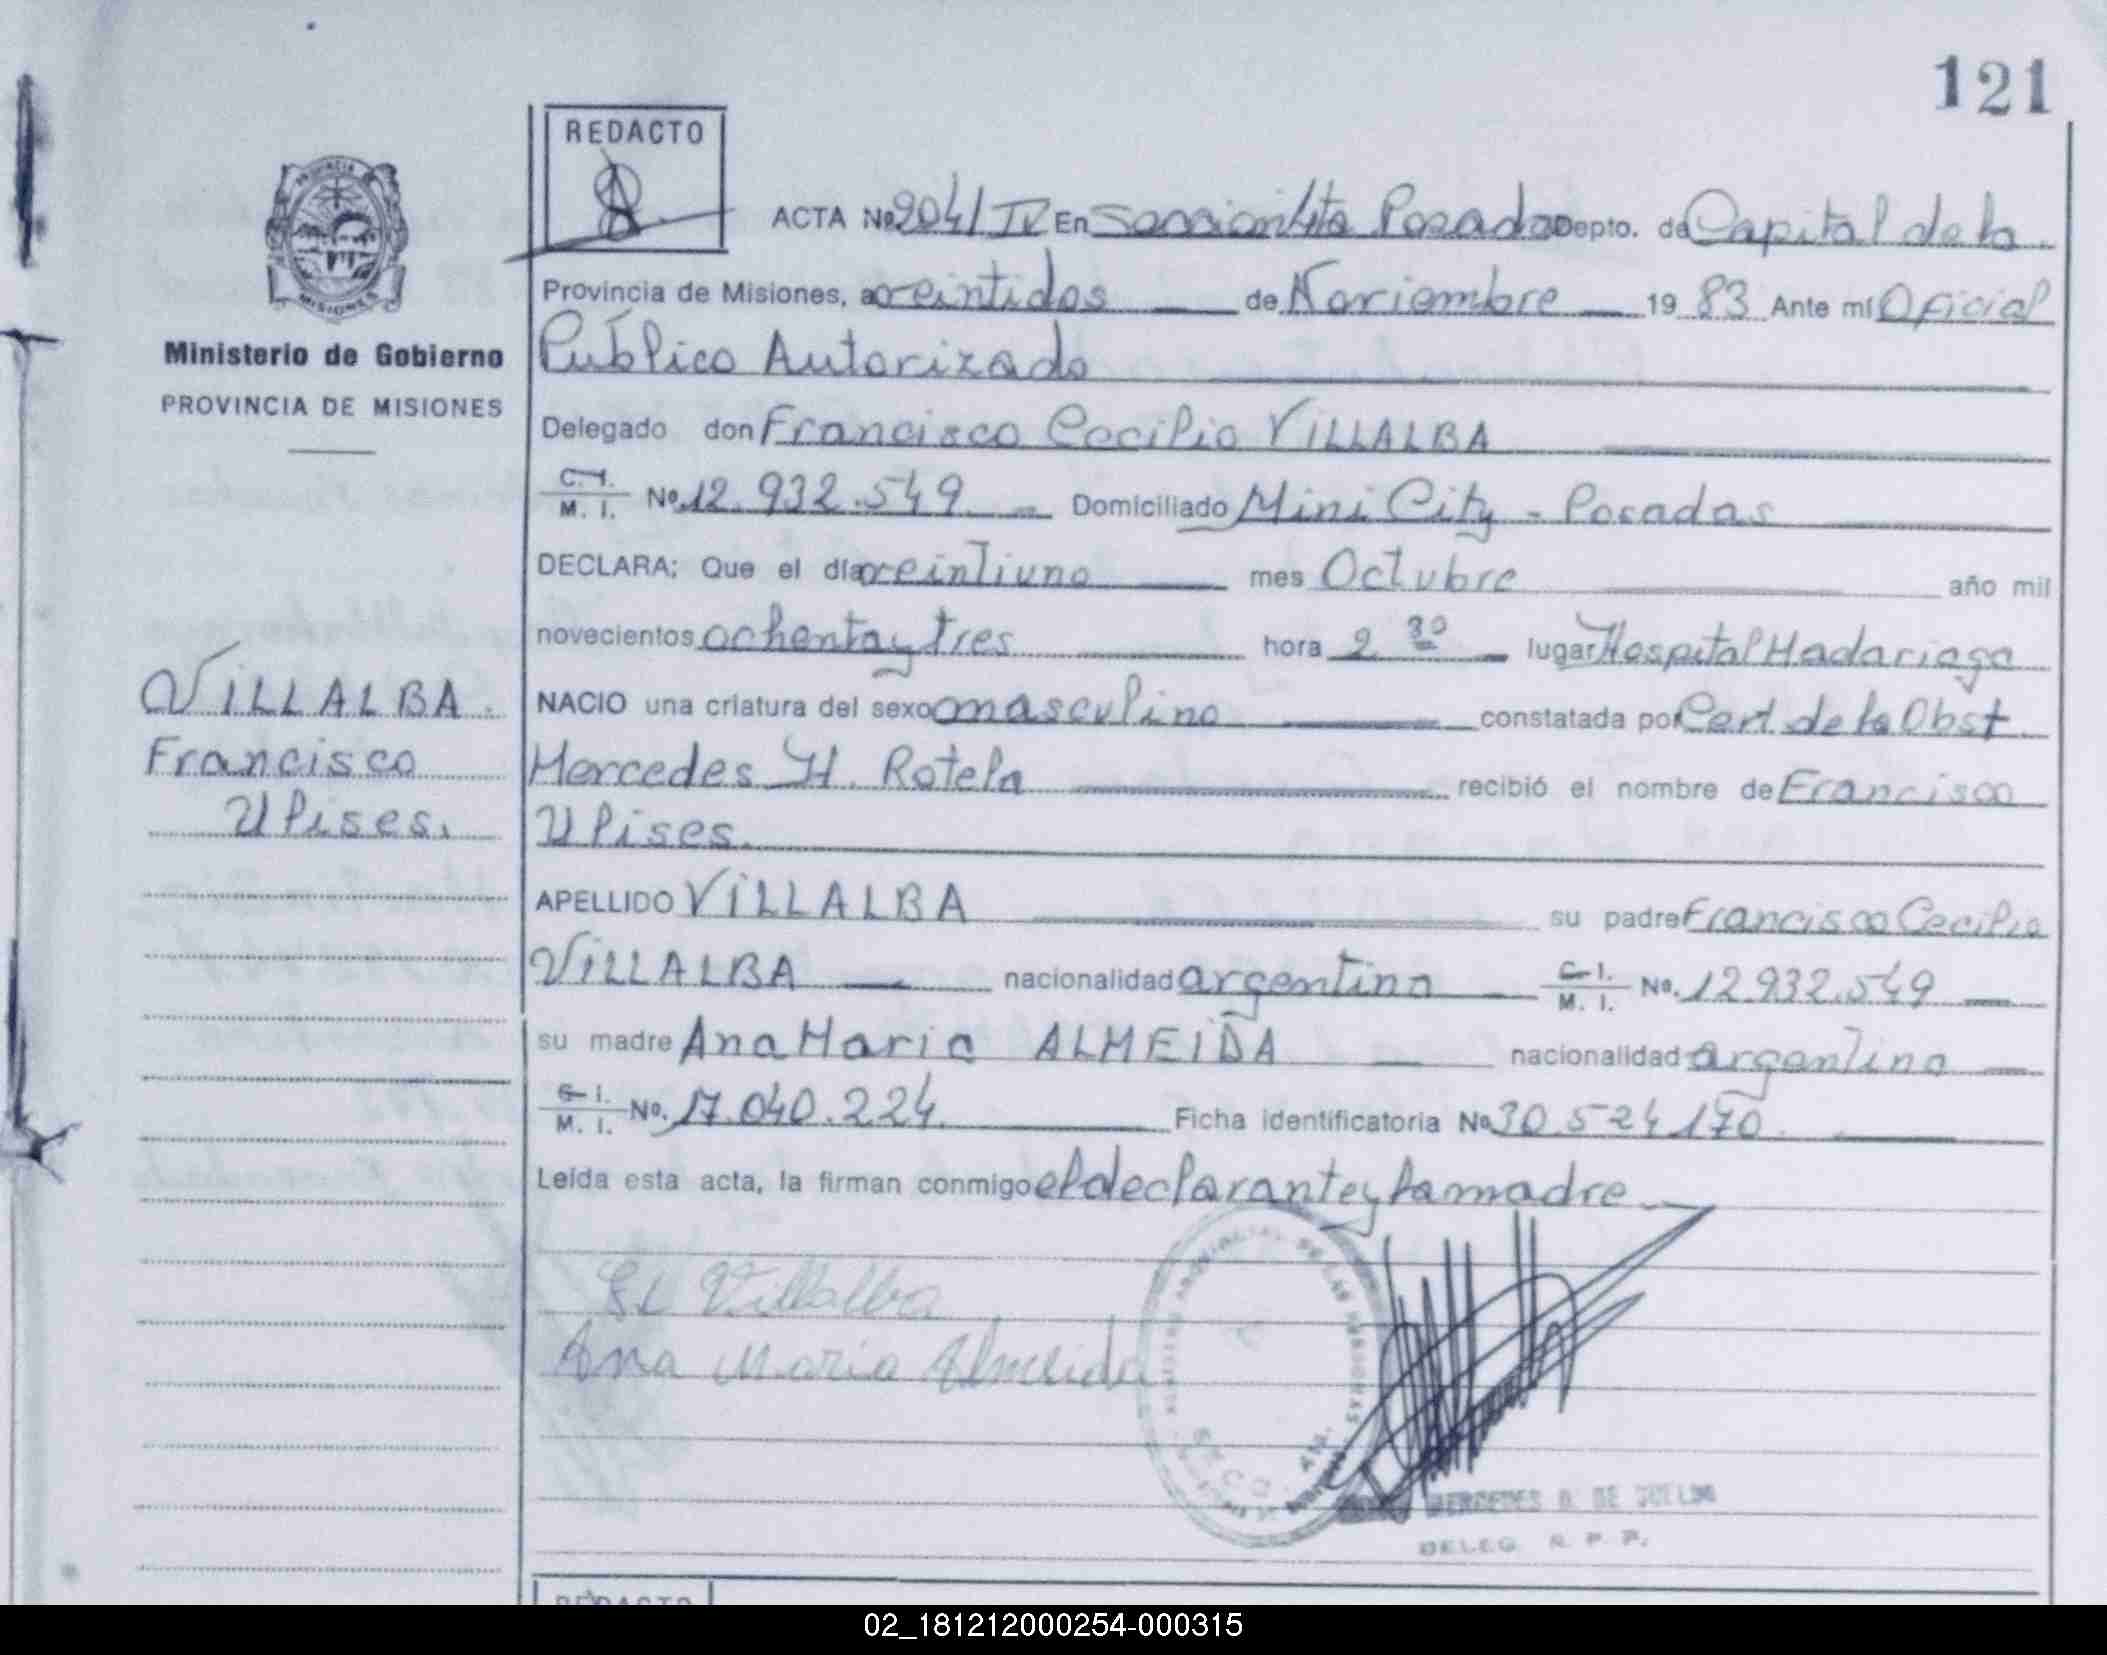 121
REDACTO
ACTA Nº 2041/IV En Sección 4ta Posadas Depto. de Capital de la
Provincia de Misiones, a veintidos de Noviembre 1983 Ante mí Oficial
Público Autorizado
Ministerio de Gobierno
PROVINCIA DE MISIONES
Delegado don Francisco Cecilio VILLALBA
C. I. M. I. Nº 12.932.549 Domiciliado Mini City - Posadas
DECLARA: Que el día veintiuno mes Octubre año mil
novecientos ochenta y tres hora 2 30 lugar Hospital Madariaga
VILLALBA.
Francisco
Ulises.
NACIO una criatura del sexo masculino constatada por Cert. de la Obst
Mercedes H. Rotela recibió el nombre de Francisco
Ulises.
APELLIDO VILLALBA su padre Francisco Cecilio
VILLALBA nacionalidad argentina C. I. M. I. Nº. 12.932.549
su madre Ana Maria ALMEIDA nacionalidad argentina
C. I. M. I. Nº. 17.040.224 Ficha identificatoria Nº 30.524.170
Leída esta acta, la firman conmigo el declarante y la madre
Villalba
Ana Maria Almeida
MERCEDES DE
DELEG. R. P. P.
REDACTO
02_181212000254-000315